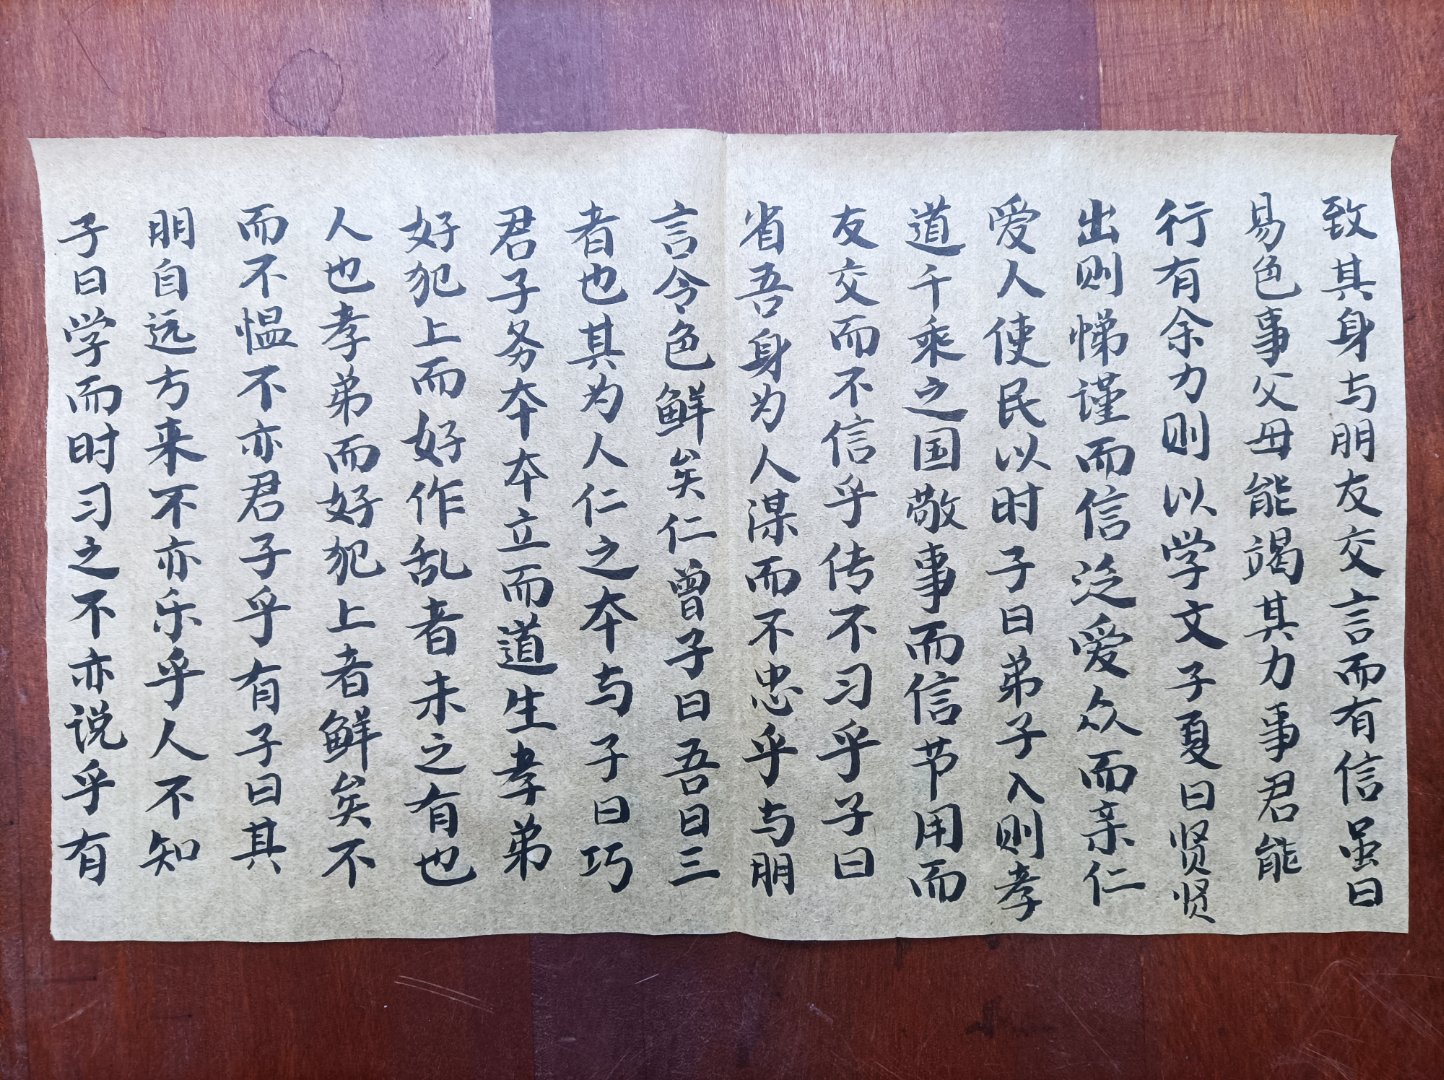 子曰学而时习之不亦说乎有
朋自远方来不亦乐乎人不知
而不愠不亦君子乎有子曰其
人也孝弟而好犯上者鲜矣不
好犯上而好作乱者未之有也
君子务本本立而道生孝弟
者也其为人仁之本与子曰巧
言令色鲜矣仁曾子曰吾日三
省吾身为人谋而不忠乎与朋
友交而不信乎传不习乎子曰
道千乘之国敬事而信节用而
爱人使民以时子曰弟子入则孝
出则悌谨而信泛爱众而亲仁
行有余力则以学文子夏曰贤贤
易色事父母能竭其力事君能
致其身与朋友交言而有信虽曰